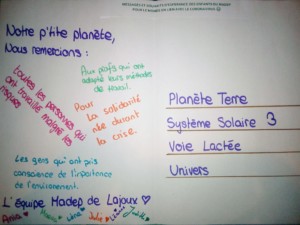 Notre p'tite planète,
Nous remercions :
toutes les personnes qui
ont travaillé malgré les
risques
Aux profs qui ont
adapté leurs méthodes
de travail.
Pour la solidarité
née durant
la crise.
Les gens qui ont pris
conscience de l'importance
de l'environnement.
L'Équipe Madep de Lajoux
Julie
Planète Terre
Système Solaire 3
Voie Lactée
Univers